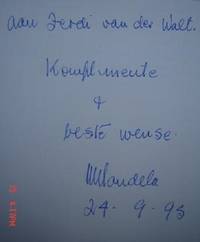 aan Ferdi van der Walt.
Komplimente
&
beste wense.
NMandela
24-9-95